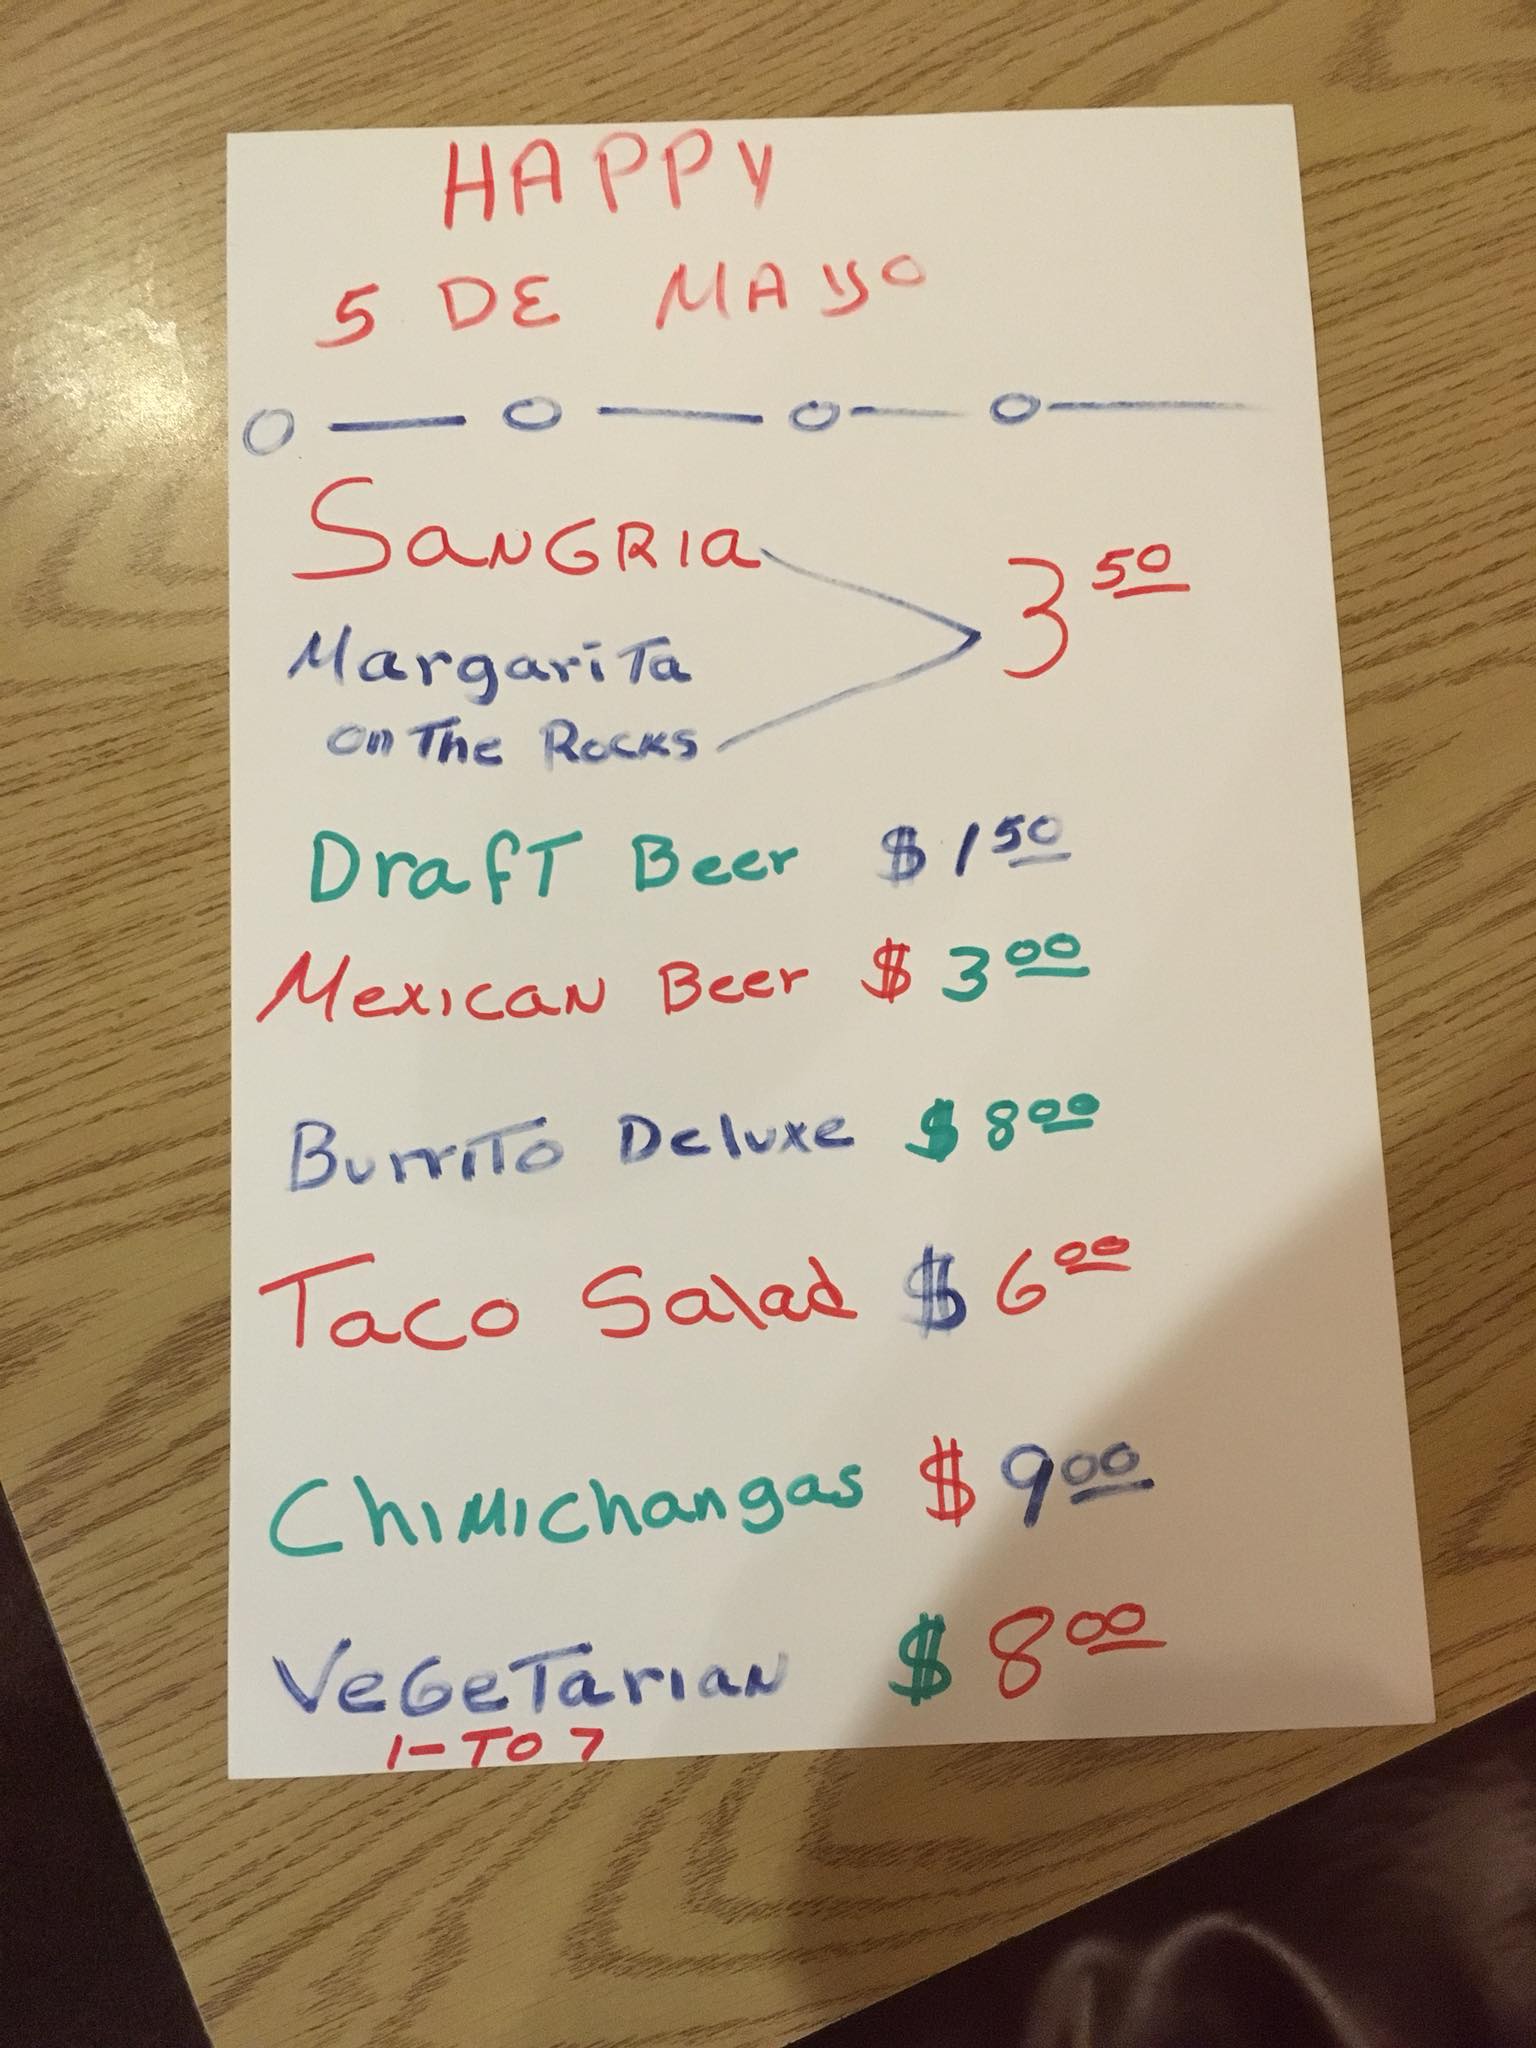 HAPPY
5 DE MAYO
SANGRIA
3 50
MargariTa
on The Rocks
DrafT Beer $ 1 50
Mexican Beer $ 3 00
BurriTo Deluxe $ 8 00
Taco Salad $ 6 00
Chimichangas $ 9 00
VegeTarian $ 8 00
1-TO 7